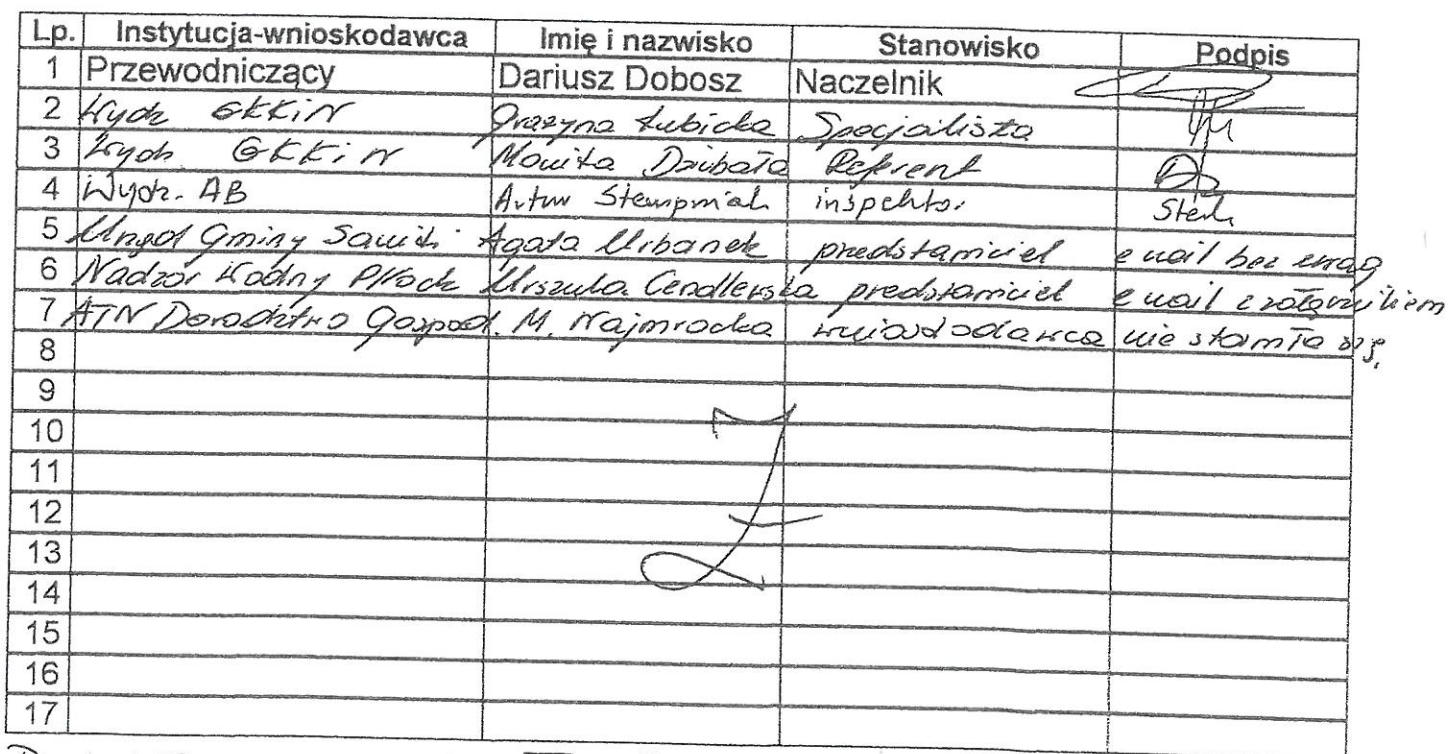 Lp. Instytucja-wnioskodawca Imię i nazwisko Stanowisko Podpis
1 Przewodniczący Dariusz Dobosz Naczelnik
2 Wydz GKKiN Grażyna Łubicka Specjalista
3 Wydz. GKKiN Monika Dzibała Referent
4 Wydz. AB Artur Stempniak inspektor
5 Urząd Gminy Agata Urbanek przedstawiciel e mail bez uwag
6 Nadzór Wodny Płock Urszula Cendlewska przedstawiciel e mail z załącznikiem
7 ATN Doradztwo Gospod. M. Najmrocka wnioskodawca nie stawiła się.
8
9
10
11
12
13
14
15
16
17